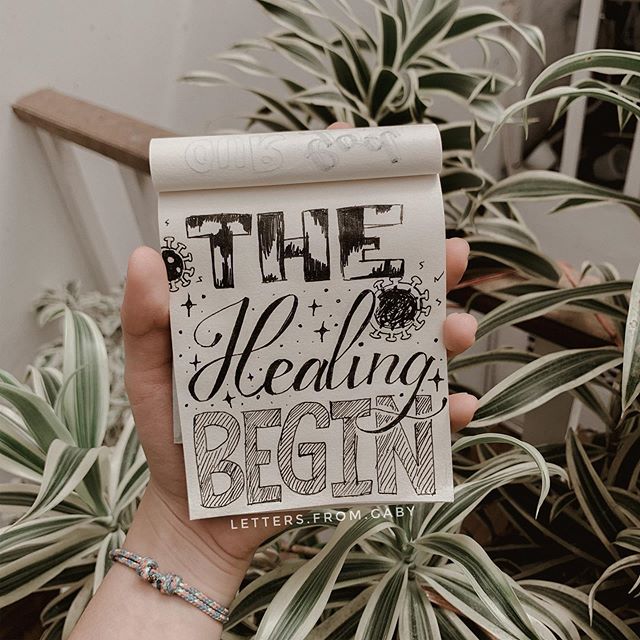 THE
Healing
BEGIN
LETTERS.FROM.GABY